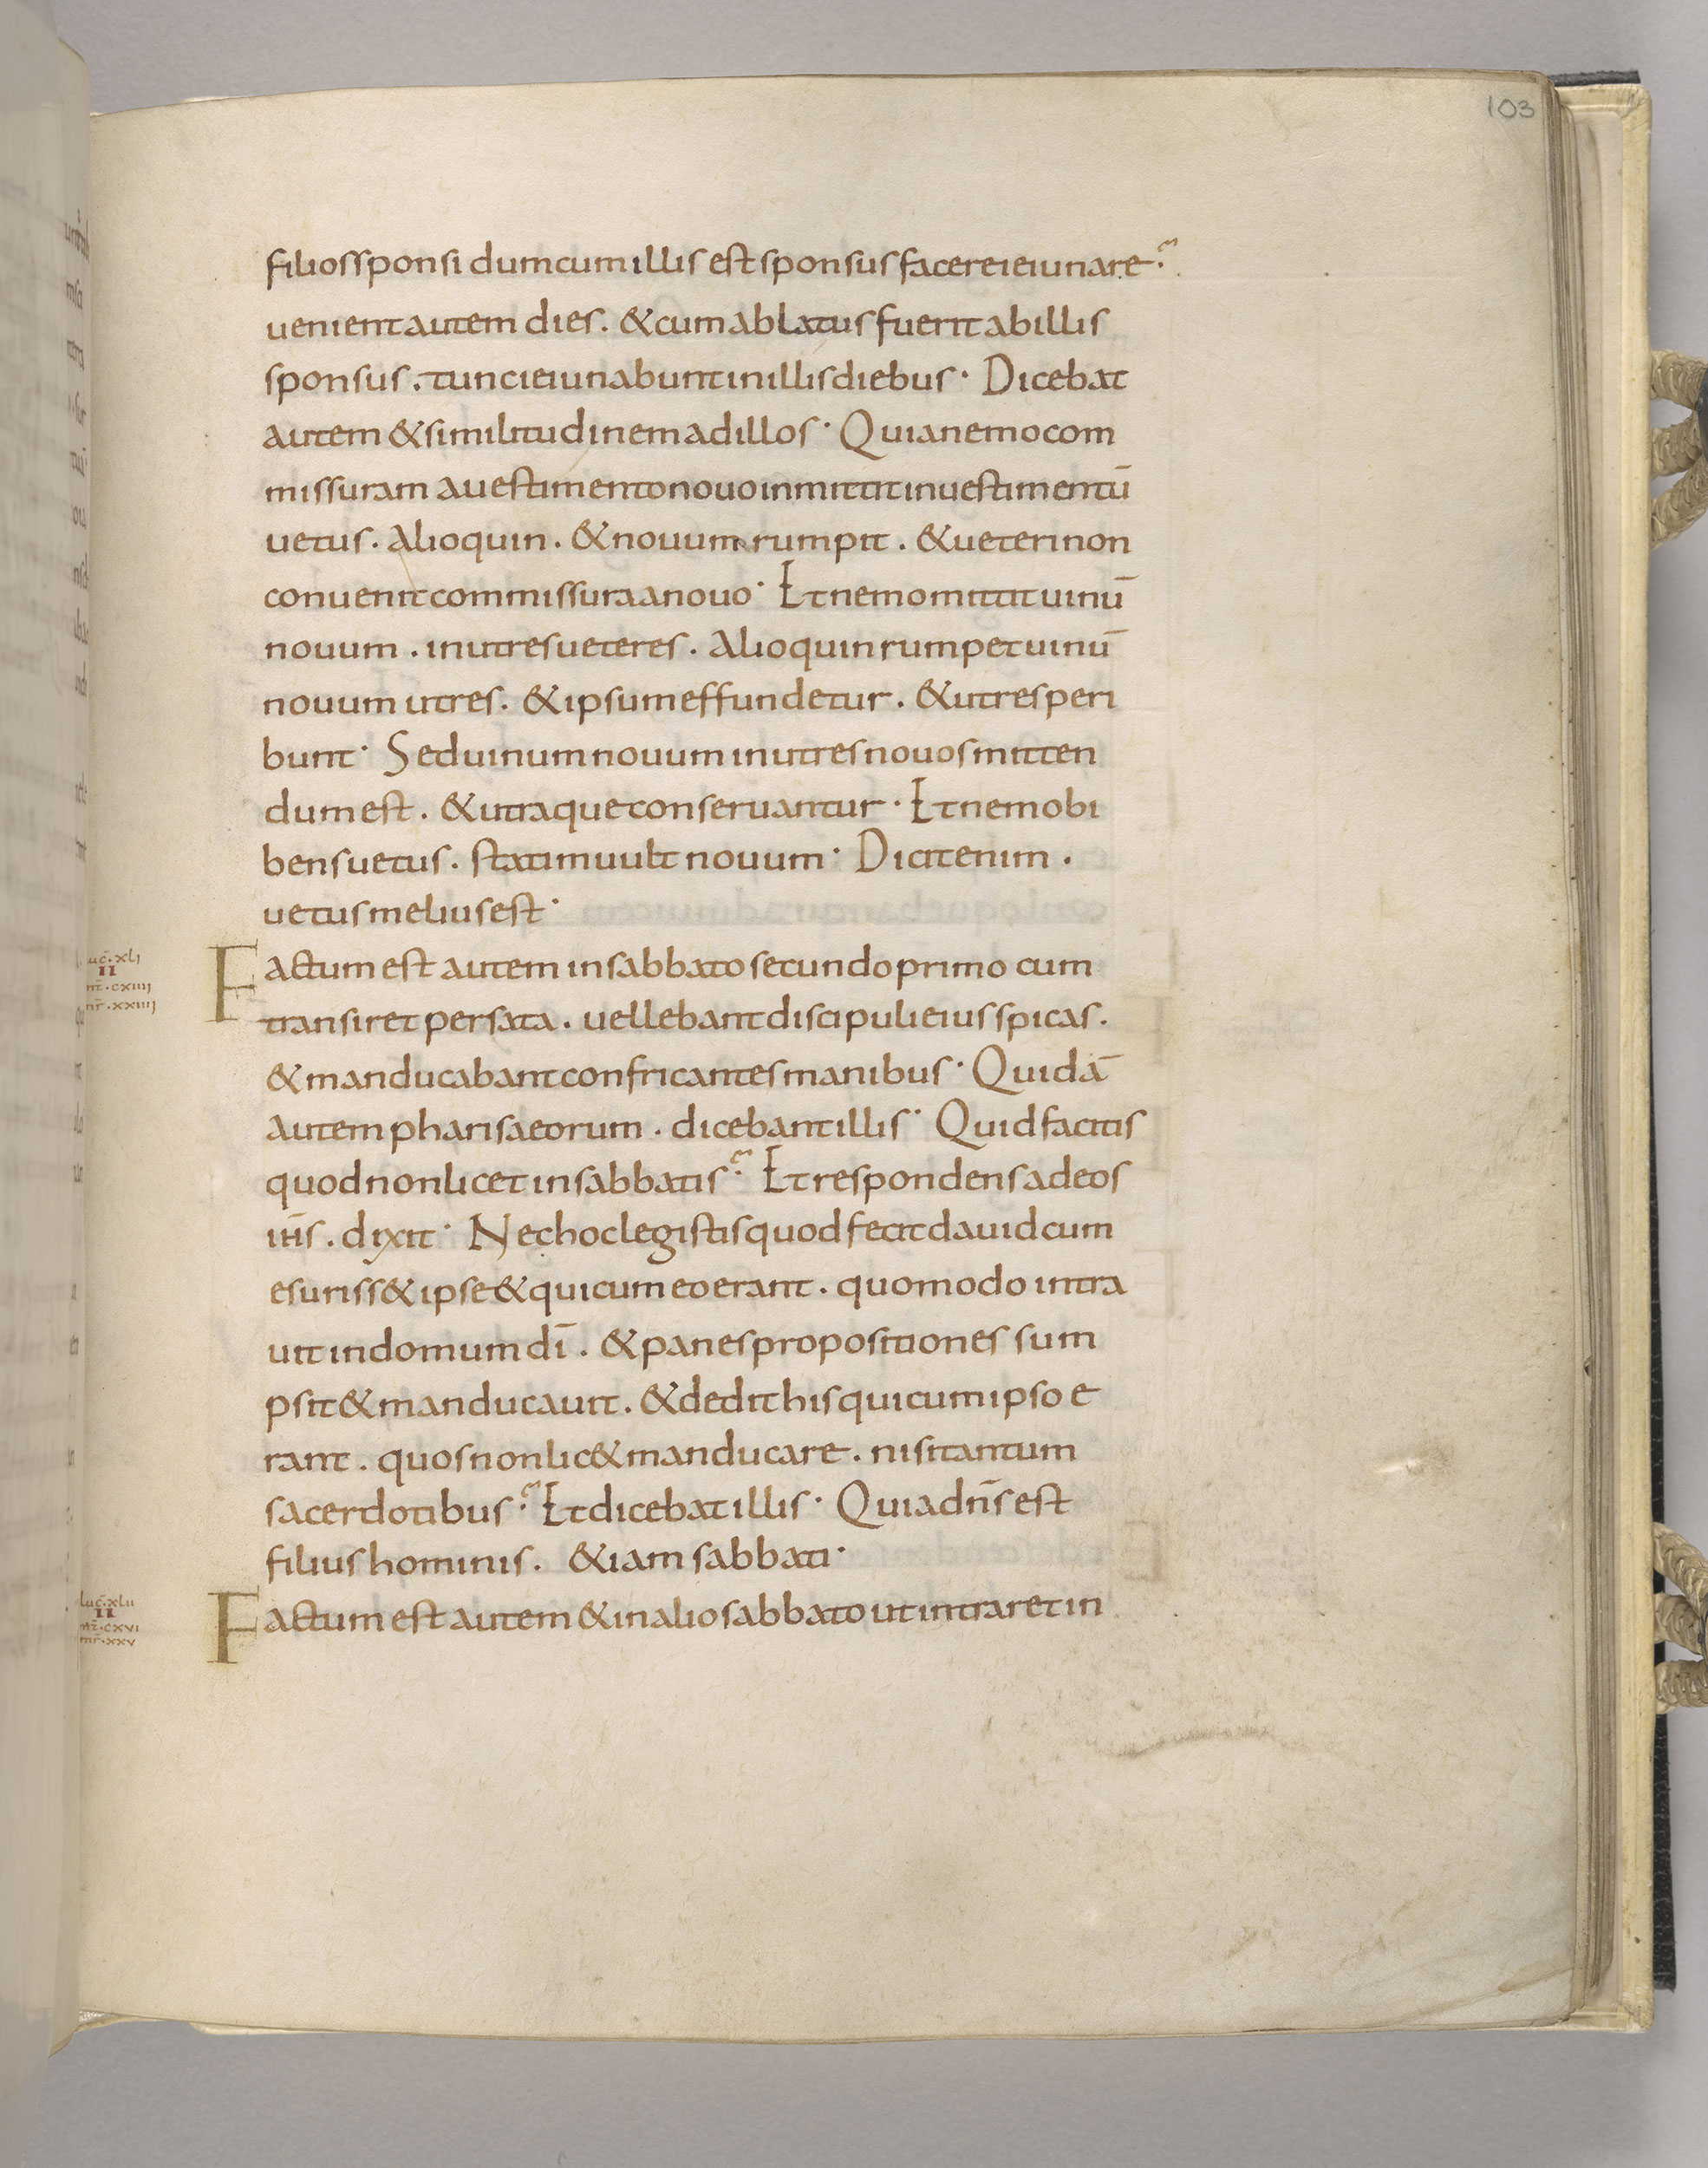 103
filios sponsi dum cum illis est sponsus facere ieiunare?
uenient autem dies. & cum ablatus fuerit ab illis
sponsus. tunc ieiunabunt in illis diebus· Dicebat
autem & similitudinem ad illos· Quia nemo com
missuram a uestimento nouo inmittit in uestimentū
uetus. Alioquin. & nouum rumpit. & ueteri non
conuenit commissura a nouo· Et nemo mittit uinū
nouum. in utres ueteres. Alioquin rumpet uinū
nouum utres. & ipsum effundetur. & utres peri
bunt· Sed uinum nouum in utres nouos mitten
dum est. & utraque conseruantur· Et nemo bi
bens uetus. statim uult nouum· Dicit enim.
uetus melius est·
luc̄·xli
II
mt̄·cxiiii
mr̄·xxiiii
Factum est autem in sabbato secundo primo cum
transiret per sata. uellebant discipuli eius spicas.
& manducabant confricantes manibus· Quidā
autem pharisaeorum. dicebant illis· Quid facitis
quod non licet in sabbatis? Et respondens ad eos
ih̄s. dixit· Nec hoc legistis quod fecit dauid cum
esuriss& ipse & qui cum eo erant. quomodo intra
uit in domum dī. & panes propositiones sum
psit & manducauit. & dedit his qui cum ipso e
rant. quos non lic& manducare. nisi tantum
sacerdotibus? Et dicebat illis· Quia dn̄s est
filius hominis. &iam sabbati·
luc̄·xlii
II
mt̄·cxvi
mr̄·xxv
Factum est autem & in alio sabbato ut intraret in